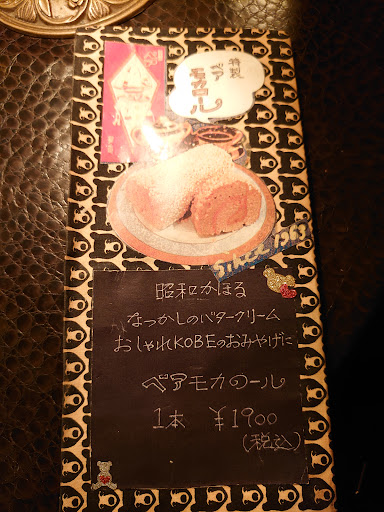 特製
ベア
モカロール
since 1963
昭和かほる
なつかしのバタークリーム
おしゃれKOBEのおみやげに
ベアモカロール
1本 ¥1900
(税込)